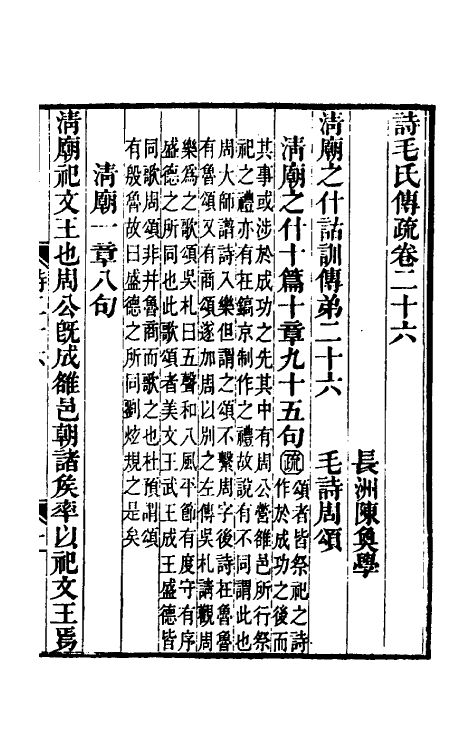 詩毛氏傳疏卷二十六
長洲陳奐學
清廟之什詁訓傳弟二十六　毛詩周頌
清廟之什十篇十章九十五句疏頌者皆祭祀之詩
作於成功之後而
其事或涉於成功之先其中有周公營雒邑所行祭
祀之禮亦有在鎬京制作之禮故說有不同謂此也
周大師譜詩入樂但謂之頌不繫周字後詩在魯魯
有魯頌又有商頌遂加周以別之左傳吳札請觀周
樂爲之歌頌吳札曰五聲和八風平節有度守有序
盛德之所同也此歌頌者美文王武王成王盛德皆
同歌周頌非并魯商而歌之也杜預謂頌
有殷魯故曰盛德之所同劉炫規之是矣
清廟一章八句
清廟祀文王也周公旣成雒邑朝諸矦率以祀文王焉